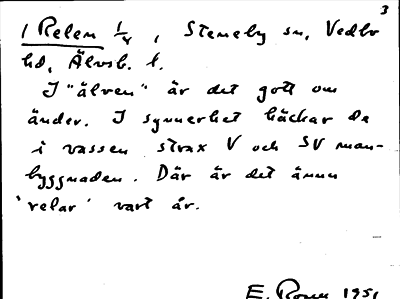 3
1 Relen 1/4, Steneby sn, Vedbo
hd, Älvsb. l.
I "älven" är det gott om
änder. I synnerhet häckar de
i vassen strax V och SV man-
byggnaden. Där är det ännu
'relar' vart år.
E. 1951